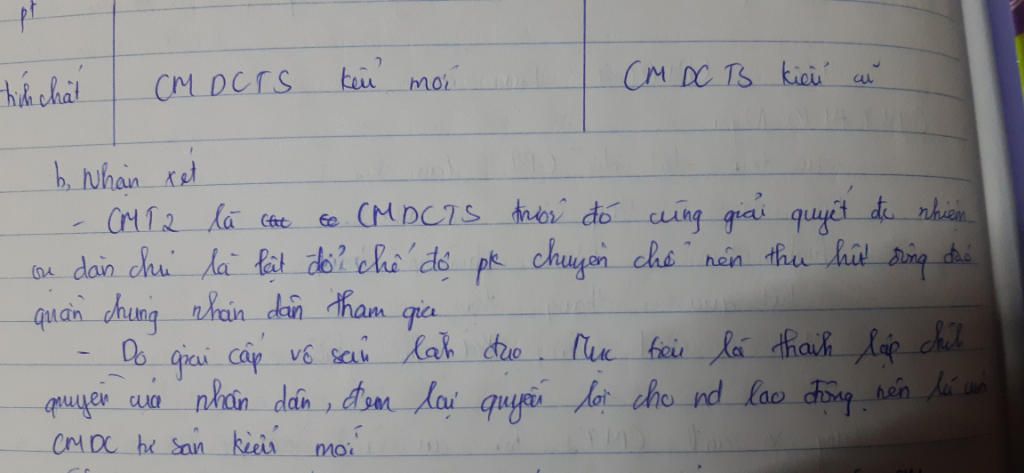 pt
tính chất CMDCTS kiểu mới CM DC TS kiểu cũ
b, Nhận xét
- CMT2 là CMDCTS trước đó cũng giải quyết đc nhiệm
vụ dân chủ là lật đổ chế độ pk chuyên chế nên thu hút đông đảo
quần chúng nhân dân tham gia
- Do giai cấp vô sản lãnh đạo. Mục tiêu là thành lập chính
quyền của nhân dân, đem lại quyền lợi cho nd lao động. nên là
CMDC tư sản kiểu mới